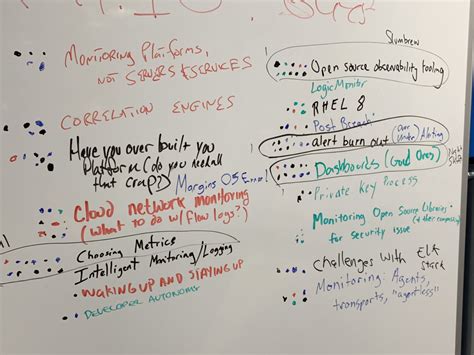 Monitoring Platforms,
not Servers & Services
Correlation Engines
Have you over built you
Platform (do you need all
that crap?)
Margins OSError!
Cloud network monitoring
(what to do w/ flow logs?)
Choosing Metrics
Intelligent Monitoring/Logging
Waking up and staying up
Developer Autonomy
Slumbrew
Open source observability tooling
LogicMonitor
RHEL 8
Post Breach
alert burn out
(Over
Under) Alerting
Dashboards (Good Ones)
Private Key Process
Monitoring Open Source Libraries
for security issue
Challenges with ELK
Stack
Monitoring: Agents,
transports, "agentless"